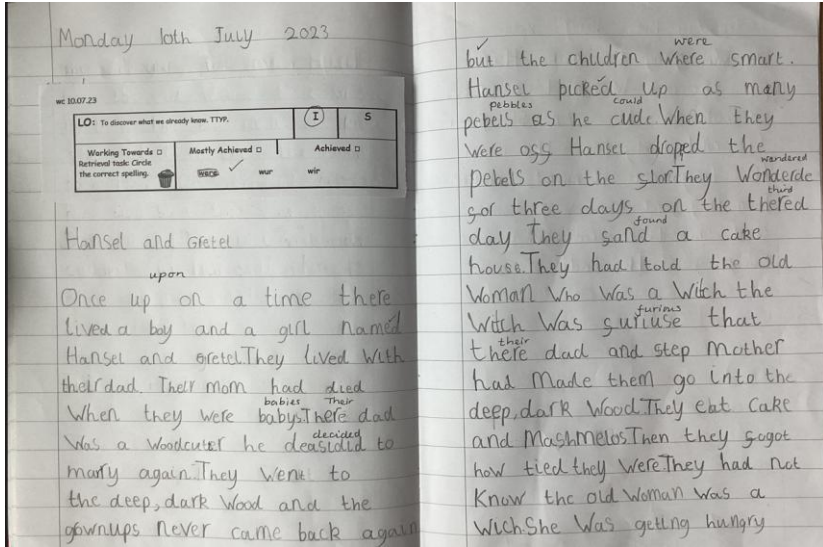 Monday 10th July 2023
wc 10.07.23
LO: To discover what we already know. TTYP.
I
S
Working Towards □
Mostly Achieved □
Achieved □
Retrieval task: Circle
the correct spelling.
were ✓ wur wir
Hansel and Gretel
upon
Once up on a time there
lived a boy and a girl named
Hansel and Gretel.They lived with
their dad. Their mom had died
babies Their
When they were babys.There dad
decided
Was a woodcuter he deasidid to
mary again.They went to
the deep, dark wood and the
gownups never came back again
were
✓ but the children where smart.
Hansel picked up as many
pebbles could
pebels as he cude.When they
Were ogg Hansel droped the
wandered
pebels on the glor.They Wonderde
third
gor three days on the thered
found
day they gand a cake
house.They had told the old
Woman Who was a Witch the
furious
Witch Was guriuse that
their
there dad and step mother
had made them go into the
deep, dark wood.They eat cake
and Mashmelos.Then they gogot
how tied they were.They had not
Know the old woman was a
Wich.She Was geting hungry